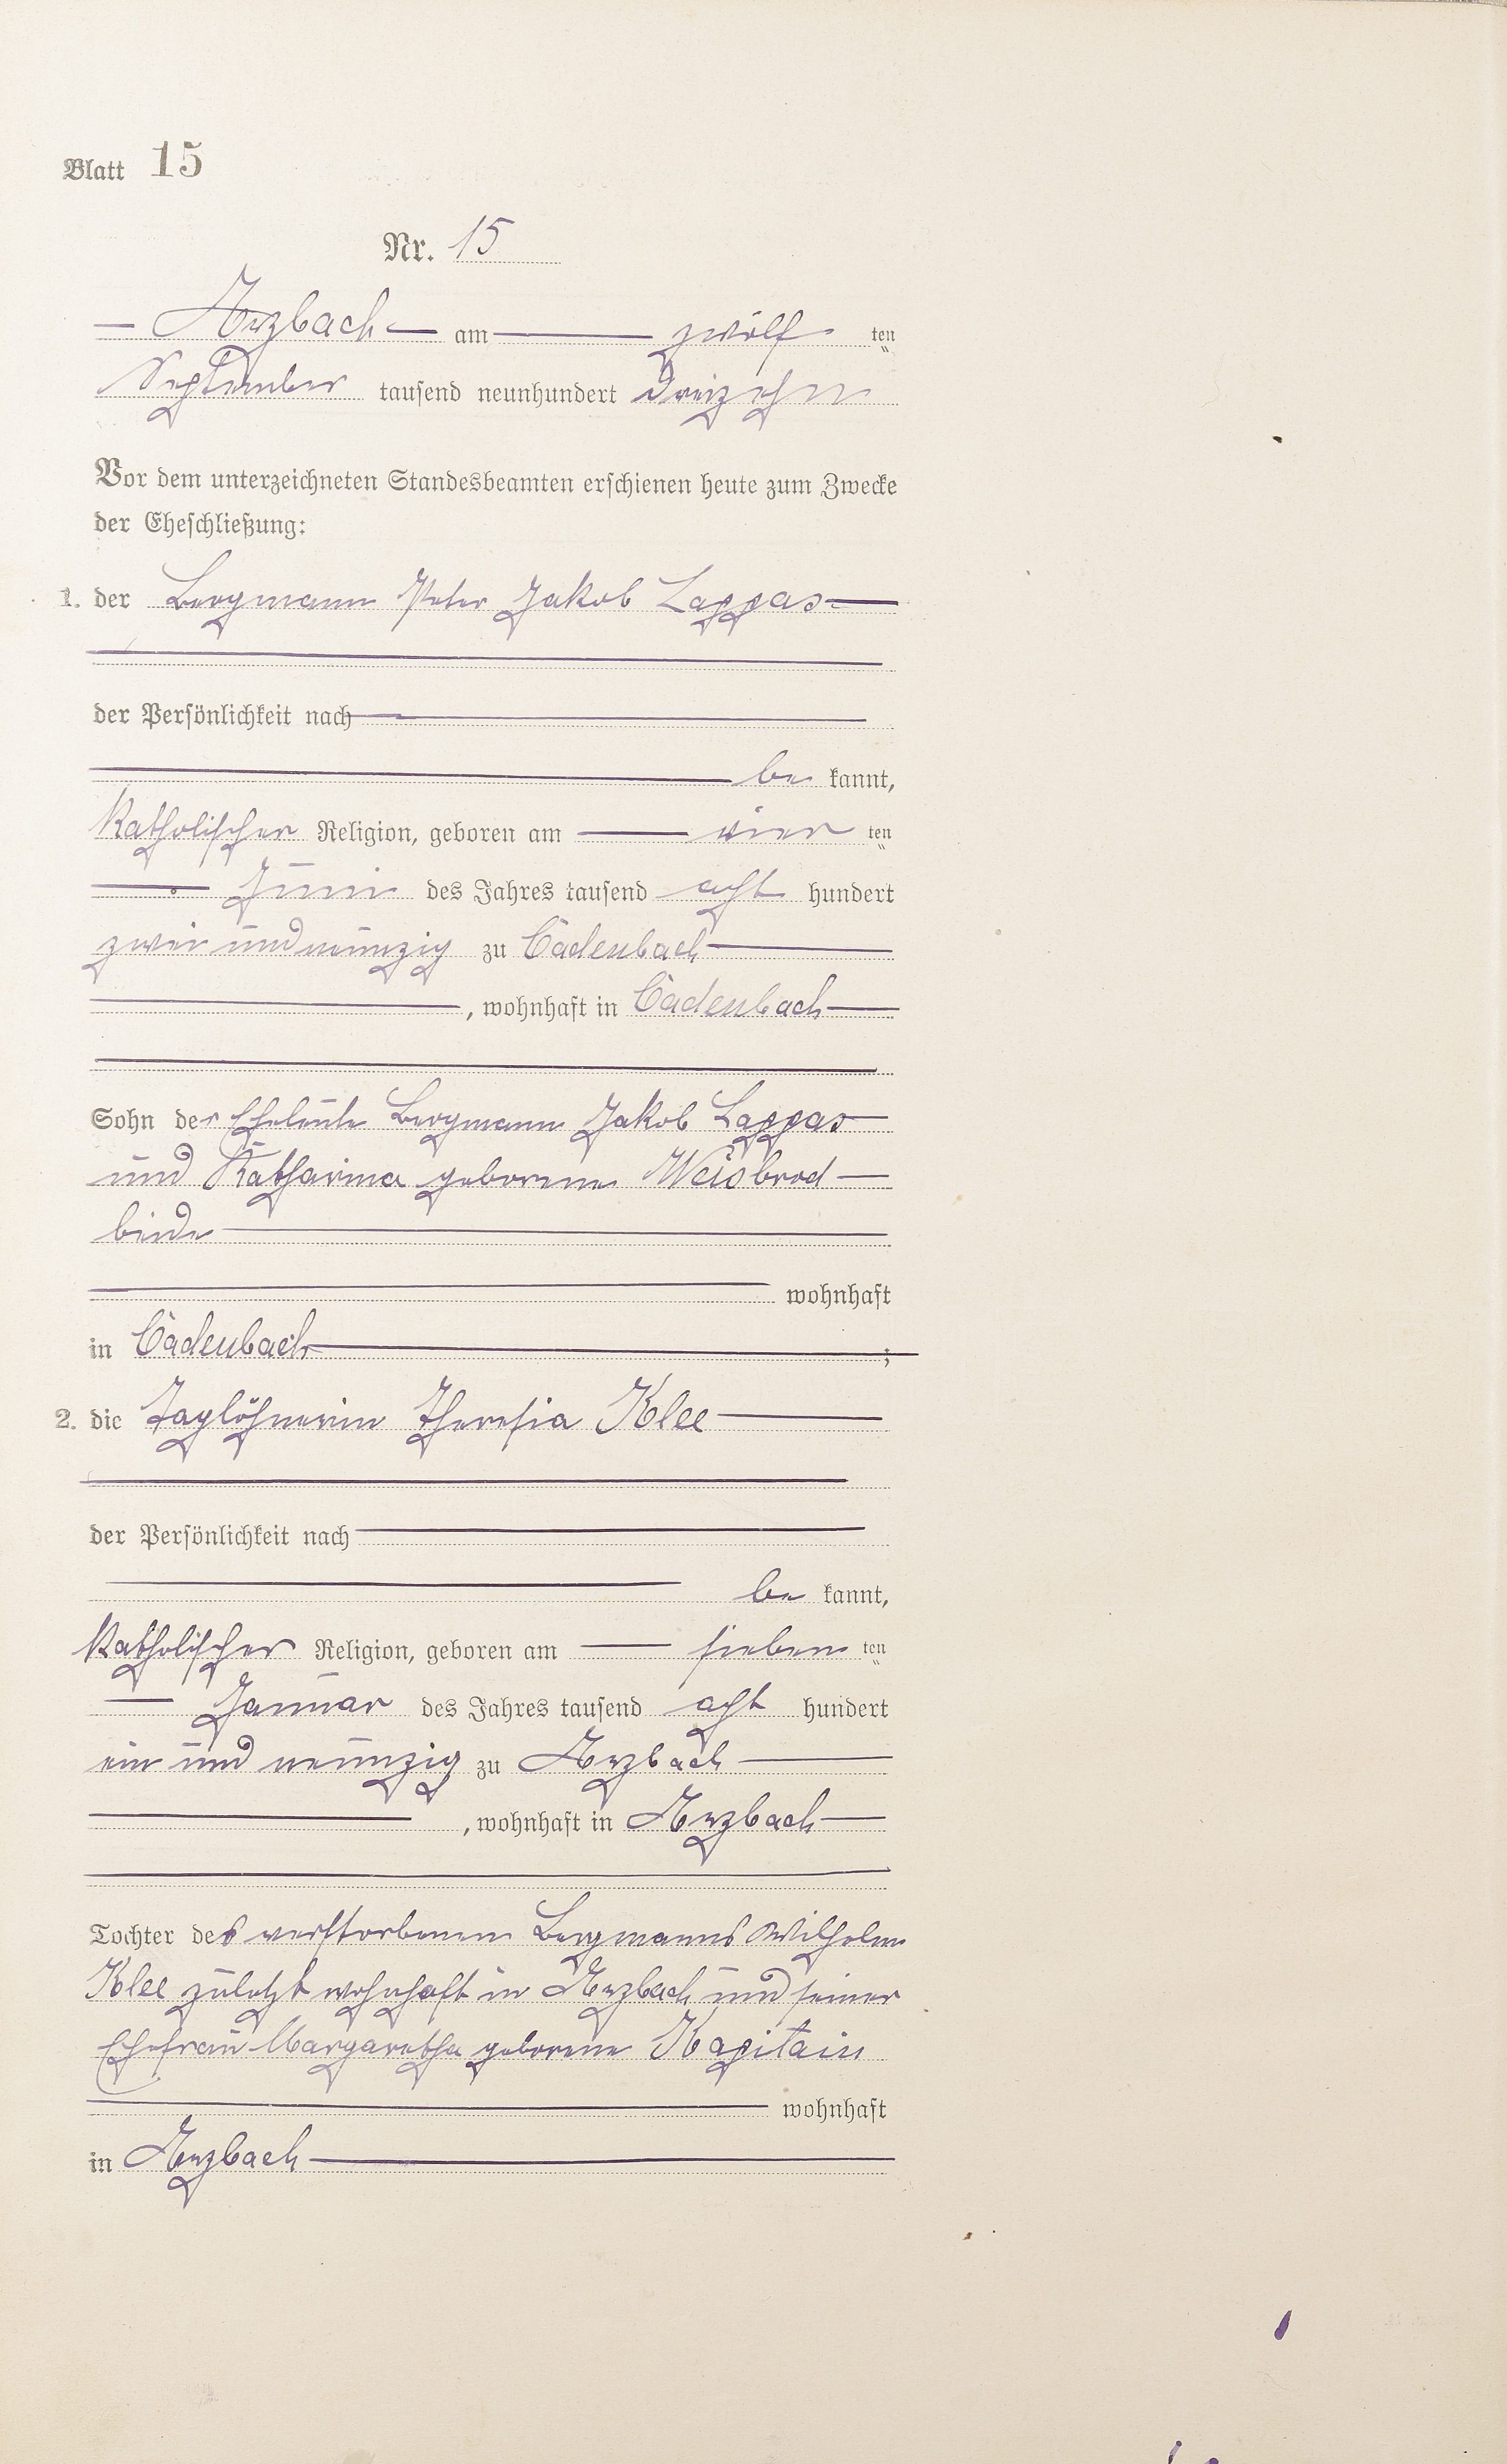 Blatt 15
Nr. 15
Arzbach am zwölf ten
September tausend neunhundert dreizehn
Vor dem unterzeichneten Standesbeamten erschienen heute zum Zwecke
der Eheschließung:
1. der Bergmann Peter Jakob Lappas
der Persönlichkeit nach
be kannt,
katholischer Religion, geboren am vier ten
Juni des Jahres tausend acht hundert
zwei und neunzig zu Cadenbach
, wohnhaft in Cadenbach
Sohn der Eheleute Bergmann Jakob Lappas
und Katharina geborene Weisbrod
beide
wohnhaft
in Cadenbach ;
2. die Taglöhnerin Theresia Klee
der Persönlichkeit nach
be kannt,
katholischer Religion, geboren am sieben ten
Januar des Jahres tausend acht hundert
ein und neunzig zu Arzbach
, wohnhaft in Arzbach
Tochter des verstorbenen Bergmanns Wilhelm
Klee zuletzt wohnhaft in Arzbach und seiner
Ehefrau Margaretha geborene Kapitain
wohnhaft
in Arzbach